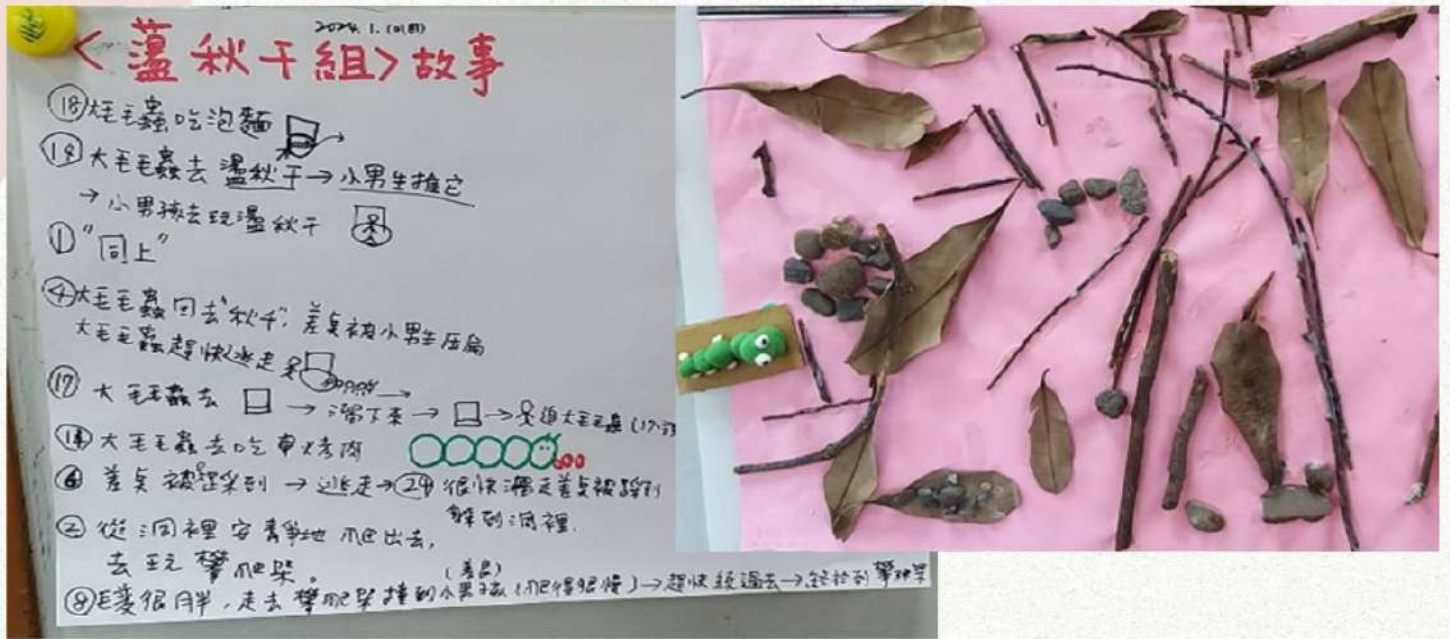 2024.1.10(日)
<盪秋千組>故事
⑱大毛毛蟲吃泡麵
⑲大毛毛蟲去盪秋千→小男生推它
→小男孩去玩盪秋千
①"同上"
④大毛毛蟲回去"秋千",差臭被小男生压扁
大毛毛蟲趕快逃走
⑰大毛毛蟲去 → 溜下來 → → 追大毛毛蟲
⑭大毛毛蟲去吃 烤肉
⑥差臭被 踩到 → 逃走→㉔很快溜走差臭被踩到
躲到洞裡.
②從洞裡安靜地爬出去,
去玩攀爬架。
(差臭)
⑧毛變很胖,走去攀爬架撞到小男孩(爬得很慢)→趕快繞過去→終於到攀爬架